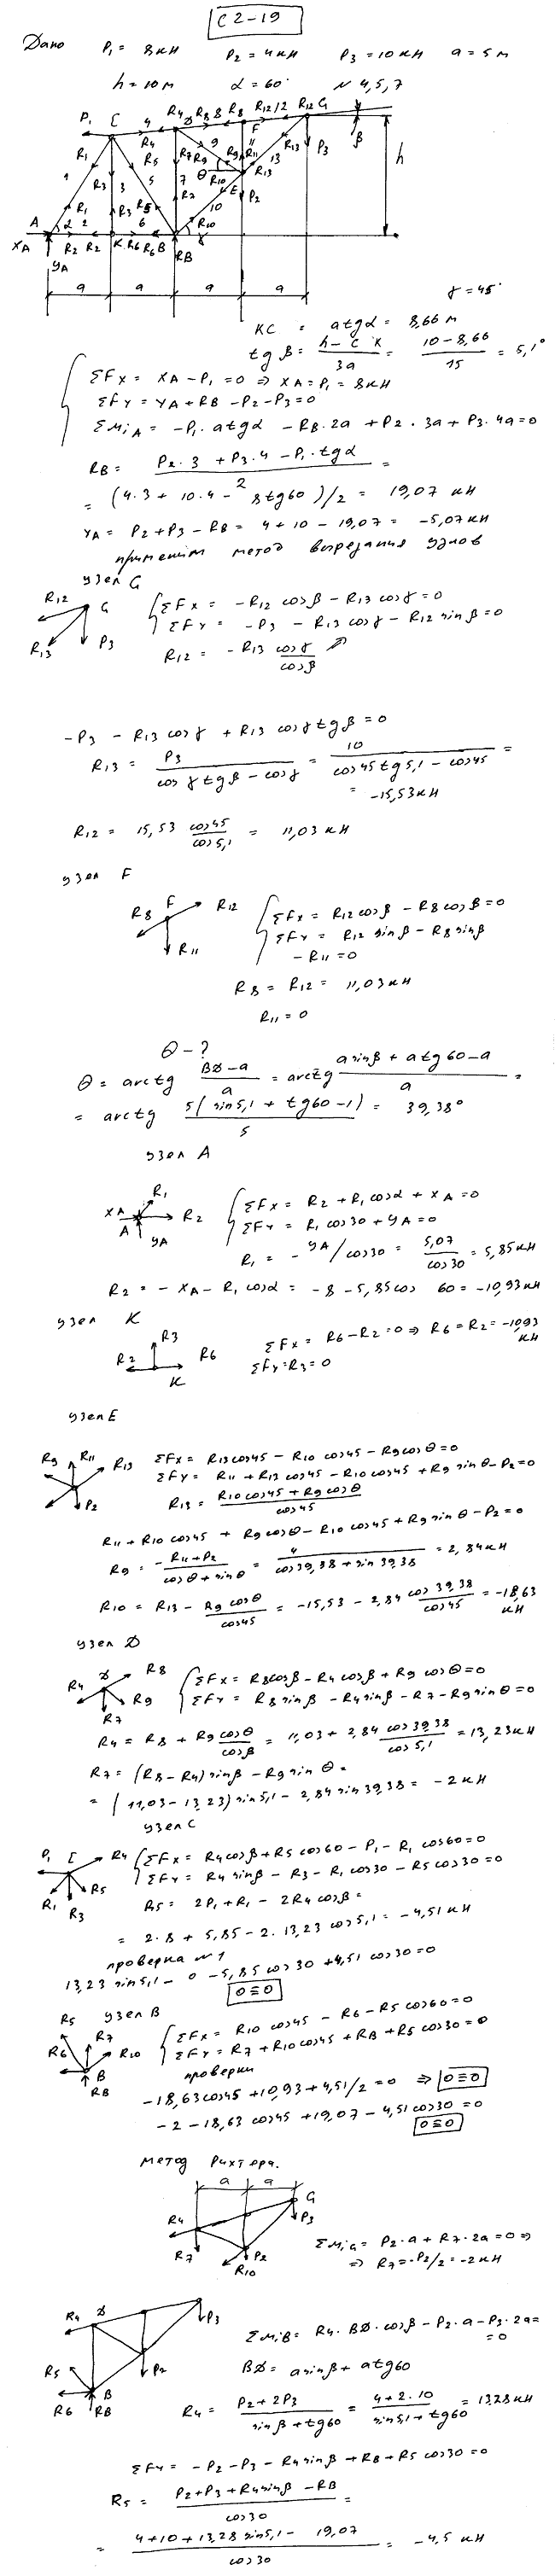 С 2-19
Дано P₁ = 8 кН P₂ = 4 кН P₃ = 10 кН a = 5 м
h = 10 м α = 60° № 4, 5, 7
γ = 45°
KC = a tg α = 8,66 м
tg β = (h - CK)/3a = (10 - 8,66)/15 = 5,1°
ΣFx = XA - P₁ = 0 ⇒ XA = P₁ = 8 кН
ΣFy = YA + RB - P₂ - P₃ = 0
ΣMiA = -P₁ · a tg α - RB · 2a + P₂ · 3a + P₃ · 4a = 0
RB = (P₂ · 3 + P₃ · 4 - P₁ · tg α)/2 =
= (4·3 + 10·4 - 8 tg 60)/2 = 19,07 кН
YA = P₂ + P₃ - RB = 4 + 10 - 19,07 = -5,07 кН
применим метод вырезания узлов
узел G
R₁₂ G R₁₃ P₃
ΣFx = -R₁₂ cos β - R₁₃ cos γ = 0
ΣFy = -P₃ - R₁₃ cos γ - R₁₂ sin β = 0
R₁₂ = -R₁₃ cos γ / cos β
-P₃ - R₁₃ cos γ + R₁₃ cos γ tg β = 0
R₁₃ = P₃/(cos γ tg β - cos γ) = 10/(cos 45 tg 5,1 - cos 45) =
= -15,53 кН
R₁₂ = 15,53 cos 45 / cos 5,1 = 11,03 кН
узел F
R₈ F R₁₂ R₁₁
ΣFx = R₁₂ cos β - R₈ cos β = 0
ΣFy = R₁₂ sin β - R₈ sin β
- R₁₁ = 0
R₈ = R₁₂ = 11,03 кН
R₁₁ = 0
Θ - ?
Θ = arctg (BD - a)/a = arctg (a sin β + a tg 60 - a)/a =
= arctg 5(sin 5,1 + tg 60 - 1)/5 = 39,38°
узел A
XA R₁ A R₂ YA
ΣFx = R₂ + R₁ cos α + XA = 0
ΣFy = R₁ cos 30 + YA = 0
R₁ = -YA/cos 30 = 5,07/cos 30 = 5,85 кН
R₂ = -XA - R₁ cos α = -8 - 5,85 cos 60 = -10,93 кН
узел K
R₃ R₂ R₆ K
ΣFx = R₆ - R₂ = 0 ⇒ R₆ = R₂ = -10,93 кН
ΣFy = R₃ = 0
узел E
R₉ R₁₁ R₁₃ P₂
ΣFx = R₁₃ cos 45 - R₁₀ cos 45 - R₉ cos Θ = 0
ΣFy = R₁₁ + R₁₃ cos 45 - R₁₀ cos 45 + R₉ sin Θ - P₂ = 0
R₁₃ = (R₁₀ cos 45 + R₉ cos Θ)/cos 45
R₁₁ + R₁₀ cos 45 + R₉ cos Θ - R₁₀ cos 45 + R₉ sin Θ - P₂ = 0
R₉ = (-R₁₁ + P₂)/(cos Θ + sin Θ) = 4/(cos 39,38 + sin 39,38) = 2,84 кН
R₁₀ = R₁₃ - R₉ cos Θ / cos 45 = -15,53 - 2,84 cos 39,38 / cos 45 = -18,63 кН
узел D
R₄ D R₈ R₉ R₇
ΣFx = R₈ cos β - R₄ cos β + R₉ cos Θ = 0
ΣFy = R₈ sin β - R₄ sin β - R₇ - R₉ sin Θ = 0
R₄ = R₈ + R₉ cos Θ / cos β = 11,03 + 2,84 cos 39,38 / cos 5,1 = 13,23 кН
R₇ = (R₈ - R₄) sin β - R₉ sin Θ =
= (11,03 - 13,23) sin 5,1 - 2,84 sin 39,38 = -2 кН
узел C
P₁ C R₄ R₅ R₁ R₃
ΣFx = R₄ cos β + R₅ cos 60 - P₁ - R₁ cos 60 = 0
ΣFy = R₄ sin β - R₃ - R₁ cos 30 - R₅ cos 30 = 0
R₅ = 2P₁ + R₁ - 2R₄ cos β =
= 2·8 + 5,85 - 2·13,23 cos 5,1 = -4,51 кН
проверка № 1
13,23 sin 5,1 - 0 - 5,85 cos 30 + 4,51 cos 30 = 0
0 ≡ 0
узел B
R₅ R₆ R₇ R₁₀ B RB
ΣFx = R₁₀ cos 45 - R₆ - R₅ cos 60 = 0
ΣFy = R₇ + R₁₀ cos 45 + RB + R₅ cos 30 = 0
проверки
-18,63 cos 45 + 10,93 + 4,51/2 = 0 ⇒ 0 ≡ 0
-2 - 18,63 cos 45 + 19,07 - 4,51 cos 30 = 0
0 ≡ 0
метод Риттера.
a a
R₄ G P₃ R₇ P₂ R₁₀
ΣMiG = P₂ · a + R₇ · 2a = 0 ⇒
⇒ R₇ = -P₂/2 = -2 кН
R₄ D P₃ P₂ R₅ B R₆ RB
ΣMiB = R₄ · BD · cos β - P₂ · a - P₃ · 2a =
= 0
BD = a sin β + a tg 60
R₄ = (P₂ + 2P₃)/(sin β + tg 60) = (4 + 2·10)/(sin 5,1 + tg 60) = 13,28 кН
ΣFy = -P₂ - P₃ - R₄ sin β + RB + R₅ cos 30 = 0
R₅ = (P₂ + P₃ + R₄ sin β - RB)/cos 30 =
= (4 + 10 + 13,28 sin 5,1 - 19,07)/cos 30 = -4,5 кН